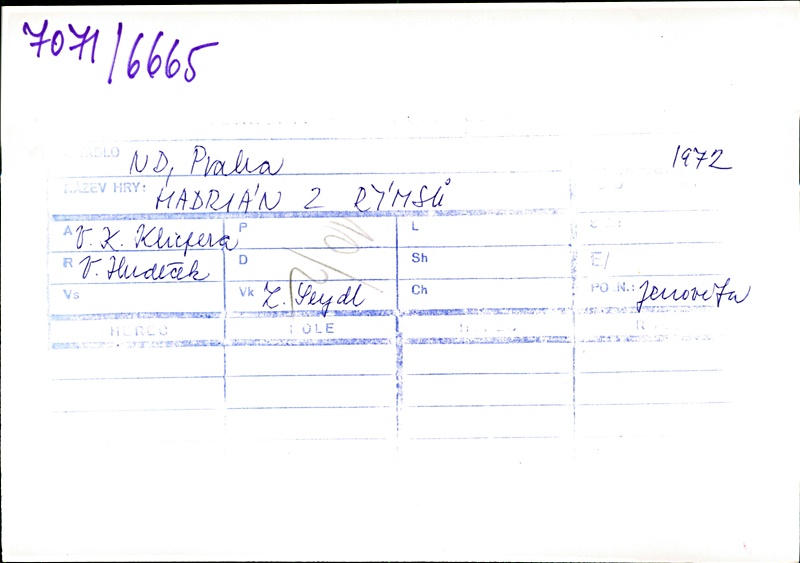 7071/6665
ND, Praha 1972
NÁZEV HRY: HADRIÁN Z RÝMSŮ
A V. K. Klicpera P L
R V. Hudeček D Sh E/
Vs Vk Z. Seydl Ch POZN.: Jenovefa
HEREC ROLE